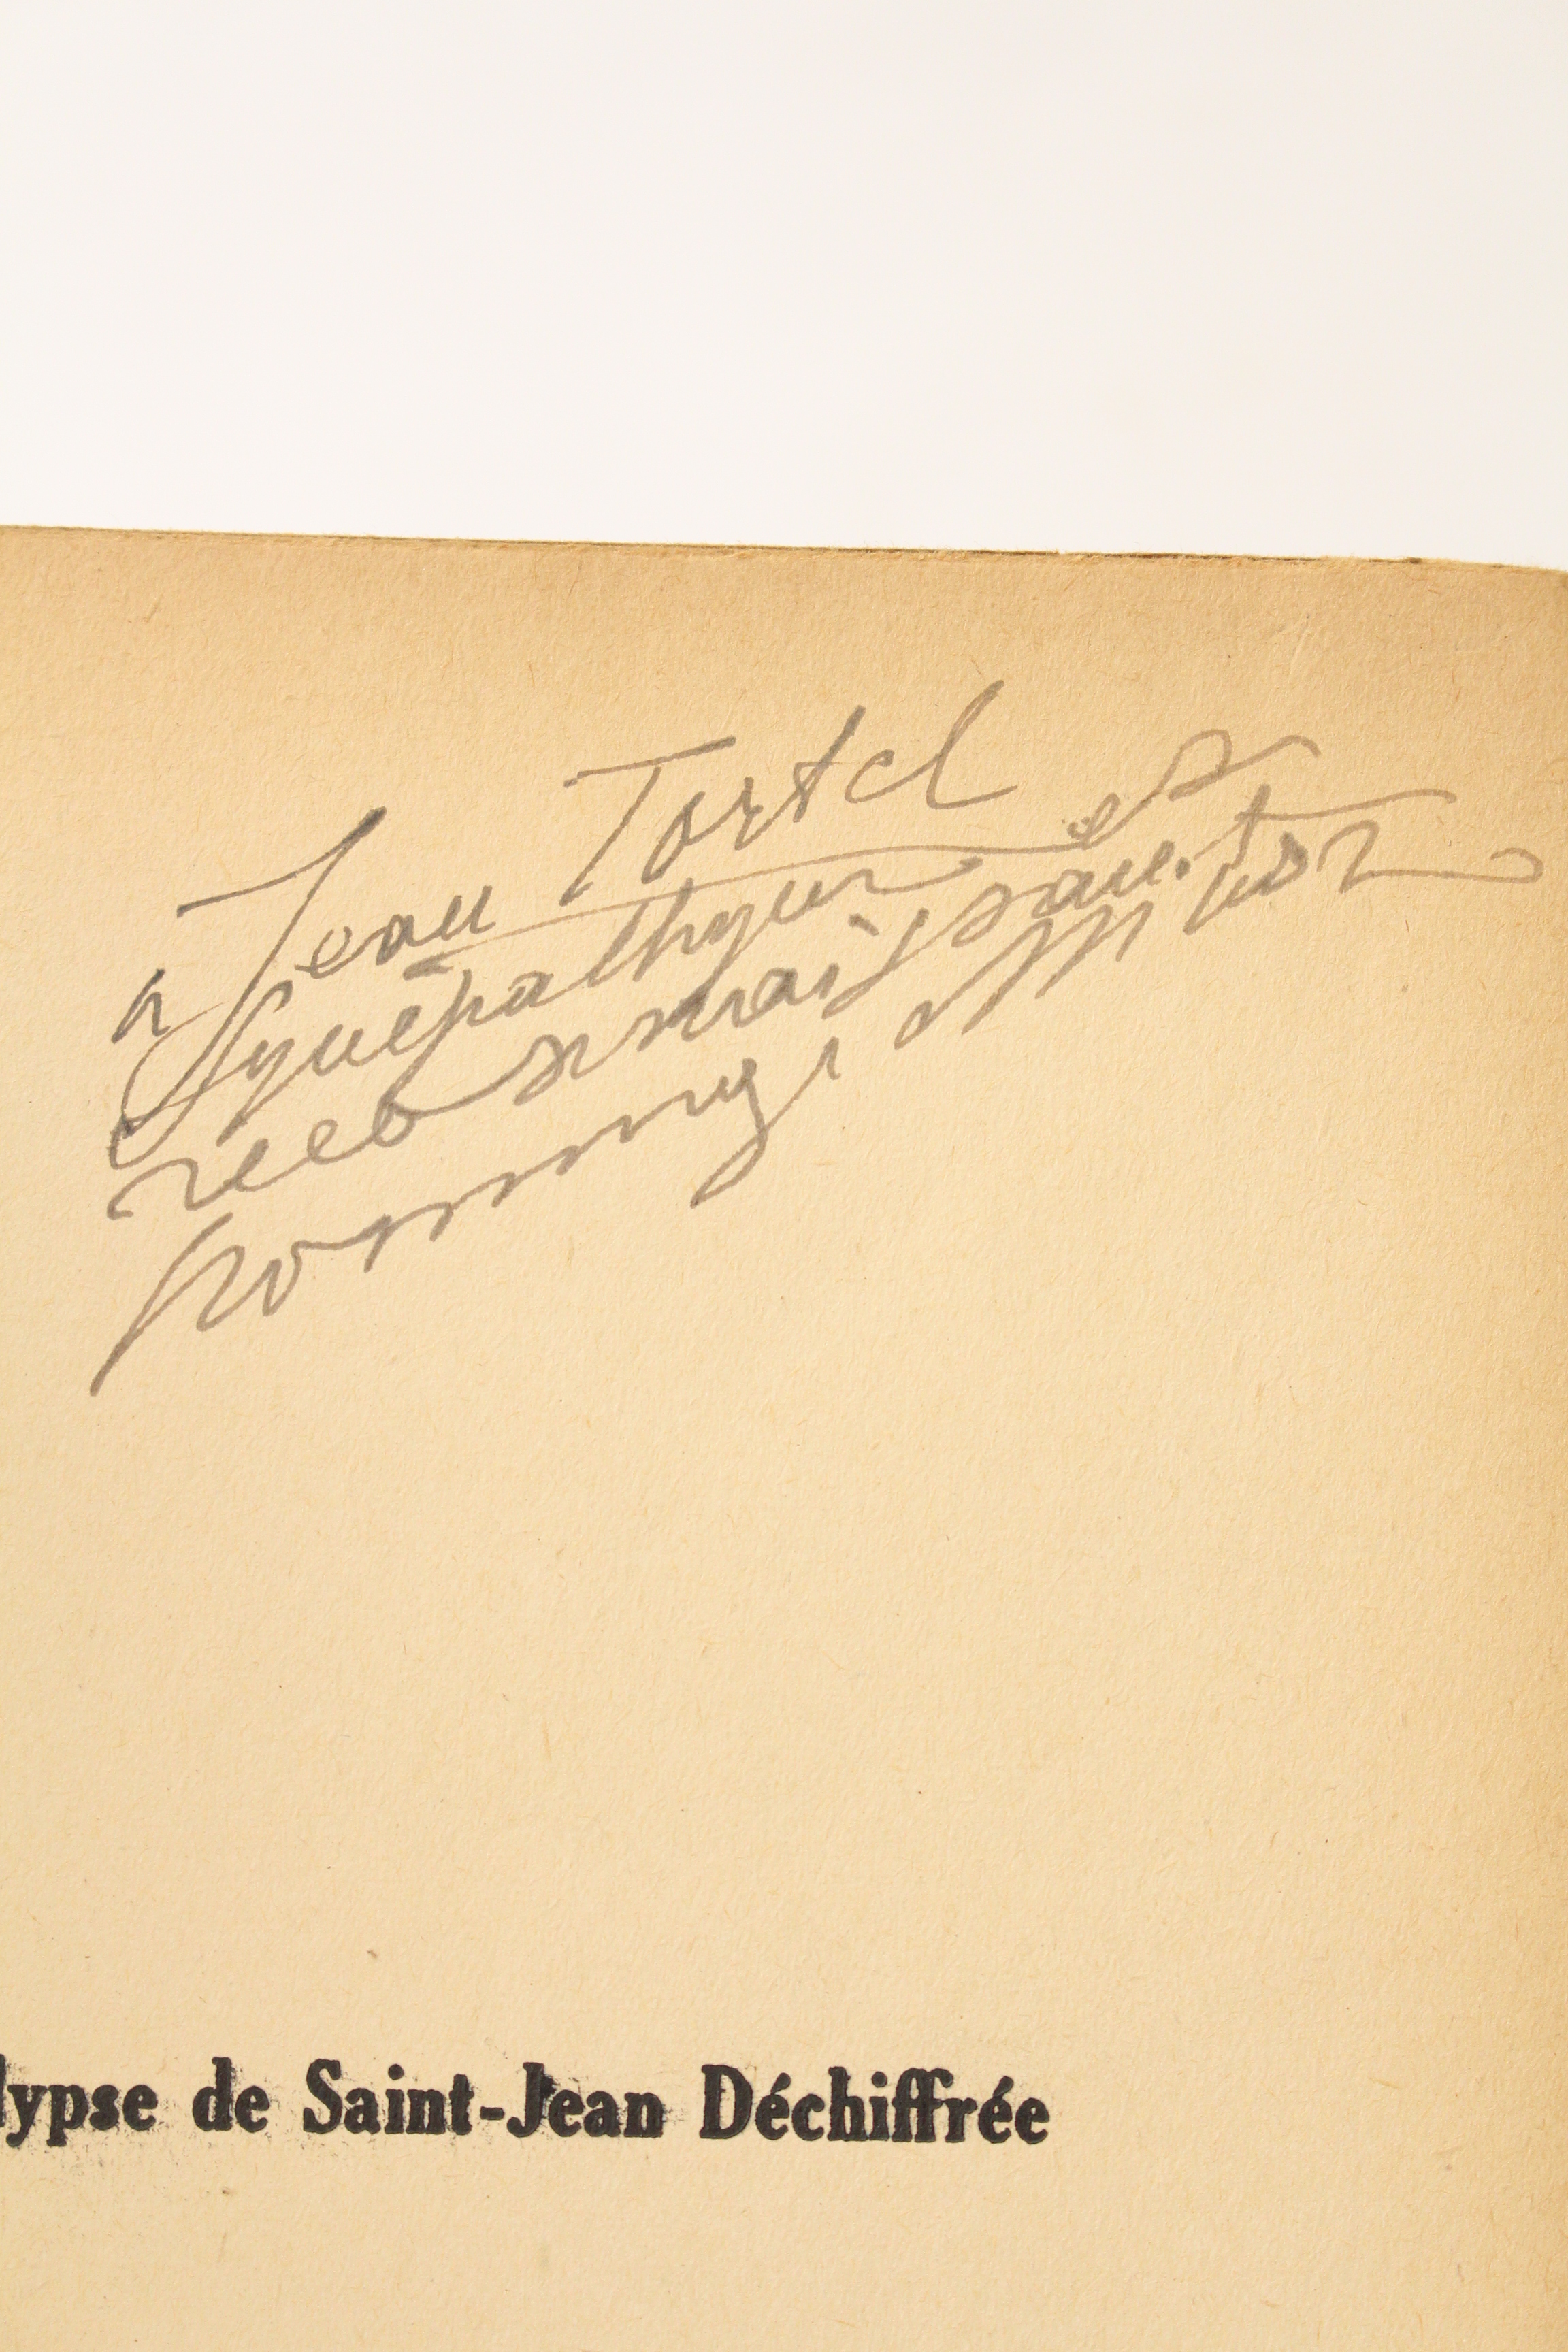 a Jean Tortel
Sympathique et
reconnaissant
hommage
lypse de Saint-Jean Déchiffrée